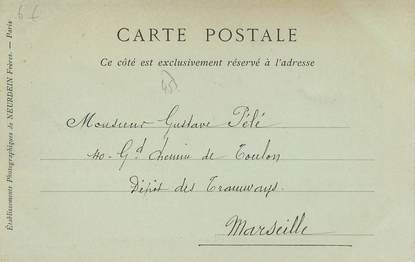 6 €
CARTE POSTALE
Ce côté est exclusivement réservé à l'adresse
Monsieur Gustave Pélé
40 - Gd Chemin de Toulon
Dépôt des Tramways.
Marseille
Établissements Photographiques de NEURDEIN Frères. — Paris